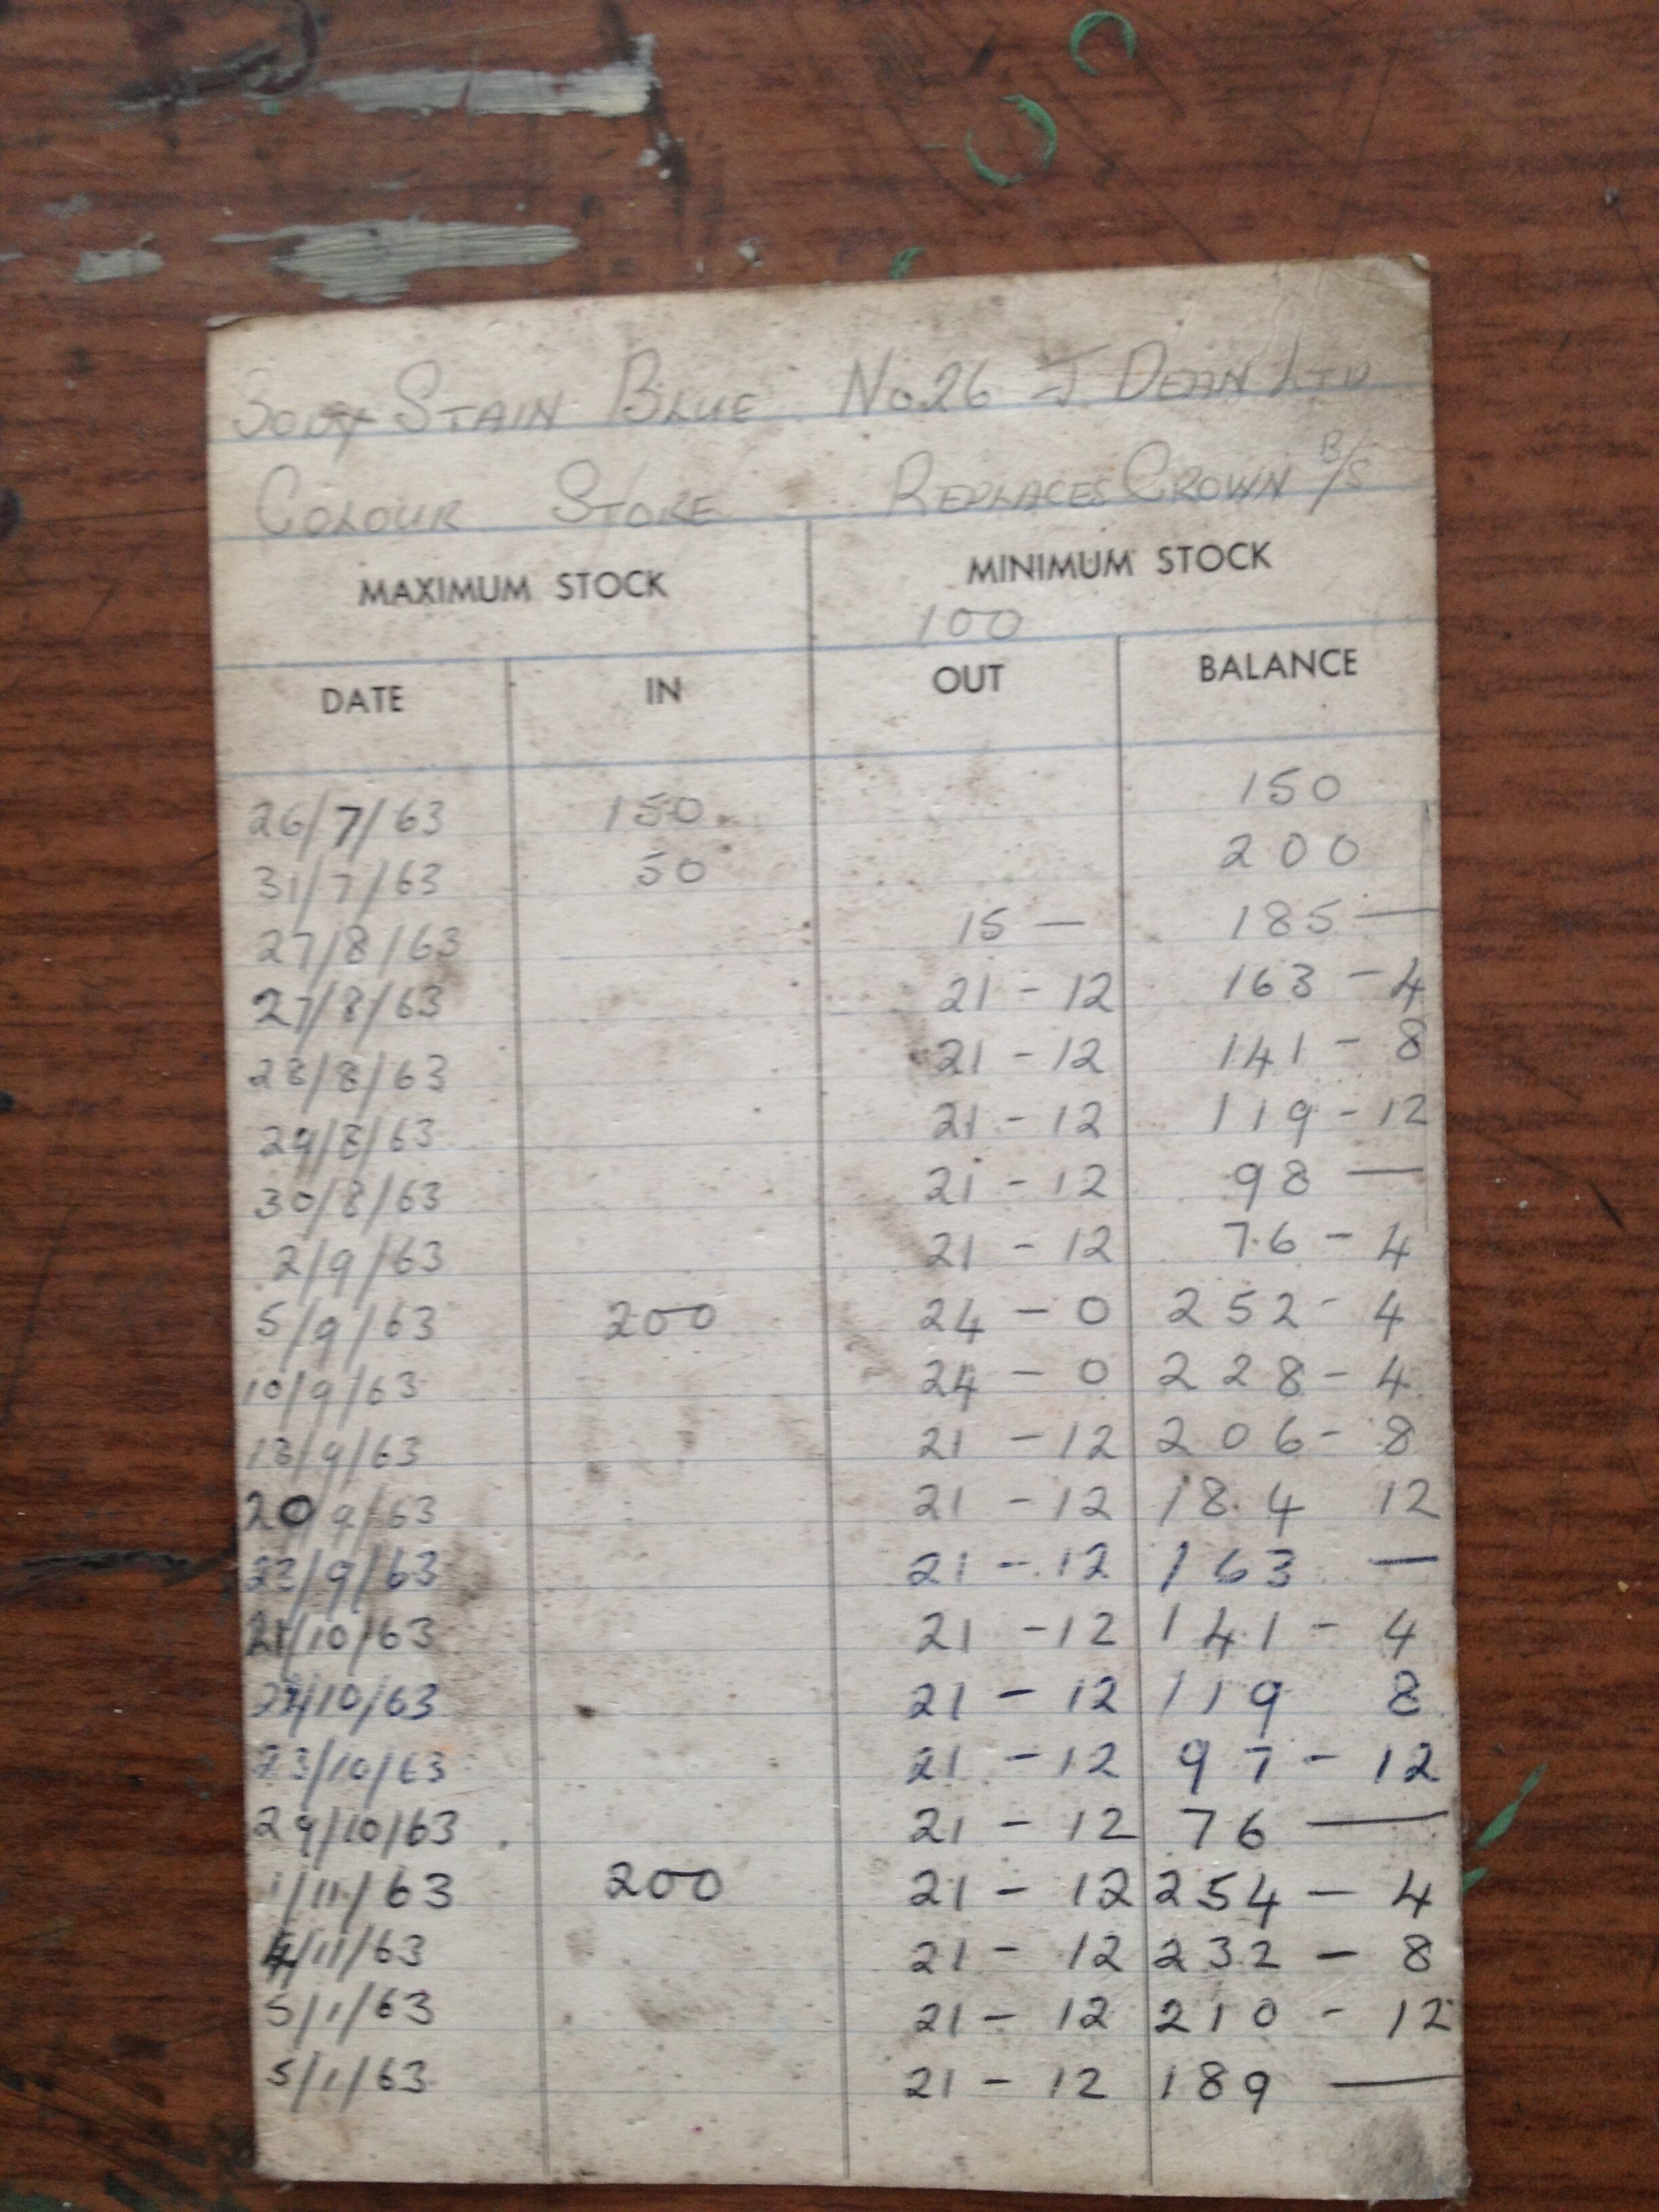 BODY STAIN BLUE No 26 J DEAN LTD
COLOUR STORE REPLACES CROWN B/S
MAXIMUM STOCK MINIMUM STOCK
100
DATE IN OUT BALANCE
26/7/63 150 150
31/7/63 50 200
27/8/63 15 — 185 —
27/8/63 21 - 12 163 - 4
28/8/63 21 - 12 141 - 8
29/8/63 21 - 12 119 - 12
30/8/63 21 - 12 98 —
2/9/63 21 - 12 76 - 4
5/9/63 200 24 - 0 252 - 4
10/9/63 24 - 0 228 - 4
18/9/63 21 - 12 206 - 8
20/9/63 21 - 12 184 12
23/9/63 21 - 12 163 —
21/10/63 21 - 12 141 - 4
22/10/63 21 - 12 119 8
23/10/63 21 - 12 97 - 12
29/10/63 21 - 12 76 —
1/11/63 200 21 - 12 254 - 4
4/11/63 21 - 12 232 - 8
5/1/63 21 - 12 210 - 12
5/1/63 21 - 12 189 —